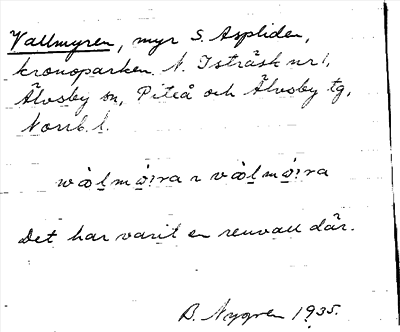 Vallmyren, myr S. Aspliden,
kronoparken N. Isträsk nr 1,
Älvsby sn, Piteå och Älvsby tg,
Norrb. l.
Det har varit en renvall där.
B. Nygren 1935.